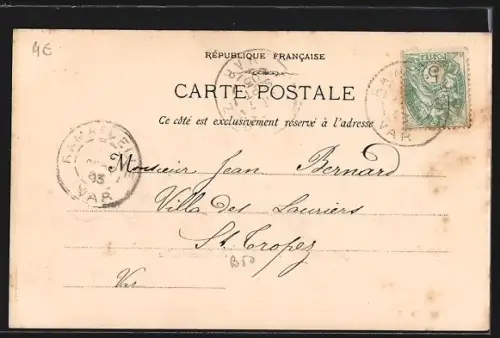 4€
RÉPUBLIQUE FRANÇAISE
CARTE POSTALE
Ce côté est exclusivement réservé à l'adresse
VAR
03
VAR
Monsieur Jean Bernard
Villa des Lauriers
St Tropez
Var